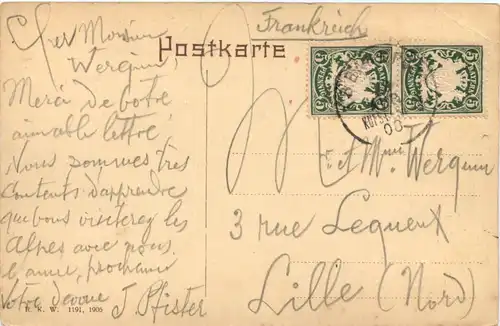 Frankreich
Postkarte
Cher Monsieur
Werquin,
Merci de votre
aimable lettre!
Nous sommes très
contents d'apprendre
que vous visiterez les
Alpes avec nous
l'année prochaine
Votre dévoué J. Pfister
BAYERN 5
BAYERN 5
M et Mme Werquin
3 rue Lequeux
Lille (Nord)
1191, 1905